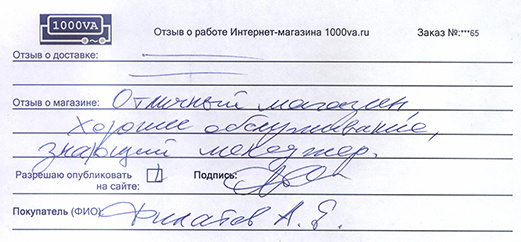 1000VA
Отзыв о работе Интернет-магазина 1000va.ru
Заказ №:***65
Отзыв о доставке:
Отзыв о магазине: Отличный магазин
хорошее обслуживание,
знающий менеджер.
Разрешаю опубликовать
на сайте:
Подпись:
Покупатель (ФИО): Филатов А.